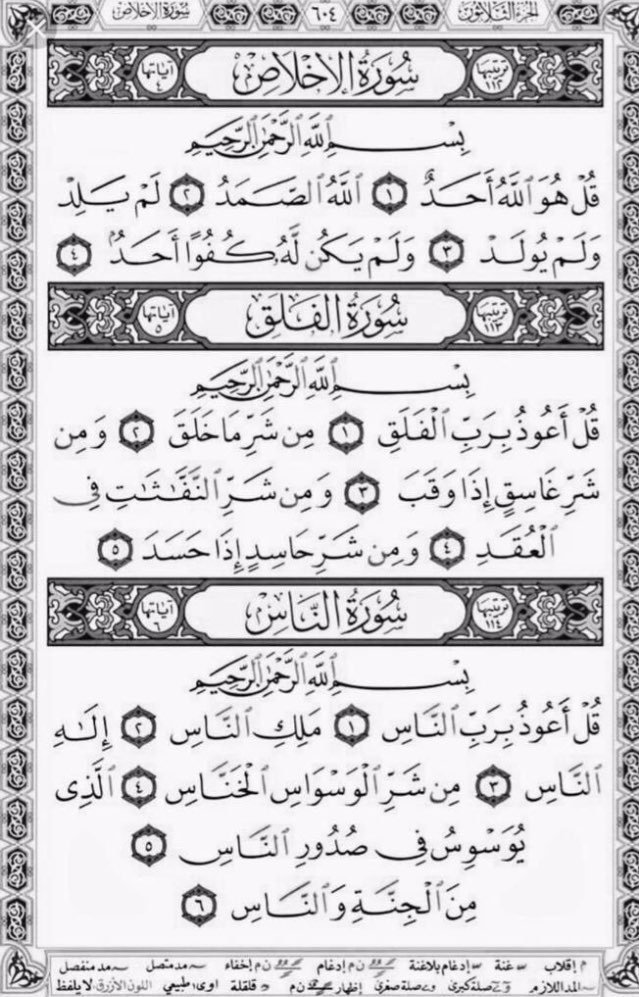 الجزء الثلاثون ٦٠٤ سورة الإخلاص
ترتيبها ١١٢ سُورَةُ الإِخْلَاصِ آياتها ٤
بِسْمِ ٱللَّهِ ٱلرَّحْمَٰنِ ٱلرَّحِيمِ
قُلْ هُوَ ٱللَّهُ أَحَدٌ ١ ٱللَّهُ ٱلصَّمَدُ ٢ لَمْ يَلِدْ
وَلَمْ يُولَدْ ٣ وَلَمْ يَكُن لَّهُۥ كُفُوًا أَحَدٌۢ ٤
ترتيبها ١١٣ سُورَةُ الفَلَقِ آياتها ٥
بِسْمِ ٱللَّهِ ٱلرَّحْمَٰنِ ٱلرَّحِيمِ
قُلْ أَعُوذُ بِرَبِّ ٱلْفَلَقِ ١ مِن شَرِّ مَا خَلَقَ ٢ وَمِن
شَرِّ غَاسِقٍ إِذَا وَقَبَ ٣ وَمِن شَرِّ ٱلنَّفَّٰثَٰتِ فِى
ٱلْعُقَدِ ٤ وَمِن شَرِّ حَاسِدٍ إِذَا حَسَدَ ٥
ترتيبها ١١٤ سُورَةُ النَّاسِ آياتها ٦
بِسْمِ ٱللَّهِ ٱلرَّحْمَٰنِ ٱلرَّحِيمِ
قُلْ أَعُوذُ بِرَبِّ ٱلنَّاسِ ١ مَلِكِ ٱلنَّاسِ ٢ إِلَٰهِ
ٱلنَّاسِ ٣ مِن شَرِّ ٱلْوَسْوَاسِ ٱلْخَنَّاسِ ٤ ٱلَّذِى
يُوَسْوِسُ فِى صُدُورِ ٱلنَّاسِ ٥
مِنَ ٱلْجِنَّةِ وَٱلنَّاسِ ٦
م إقلاب غنة إدغام بلاغنة ن م إدغام ن م إخفاء مد متصل مد منفصل
المد اللازم صلة كبرى صلة صغرى إظهار ن م قلقلة اوى طبيعي اللون الأزرق لا يلفظ